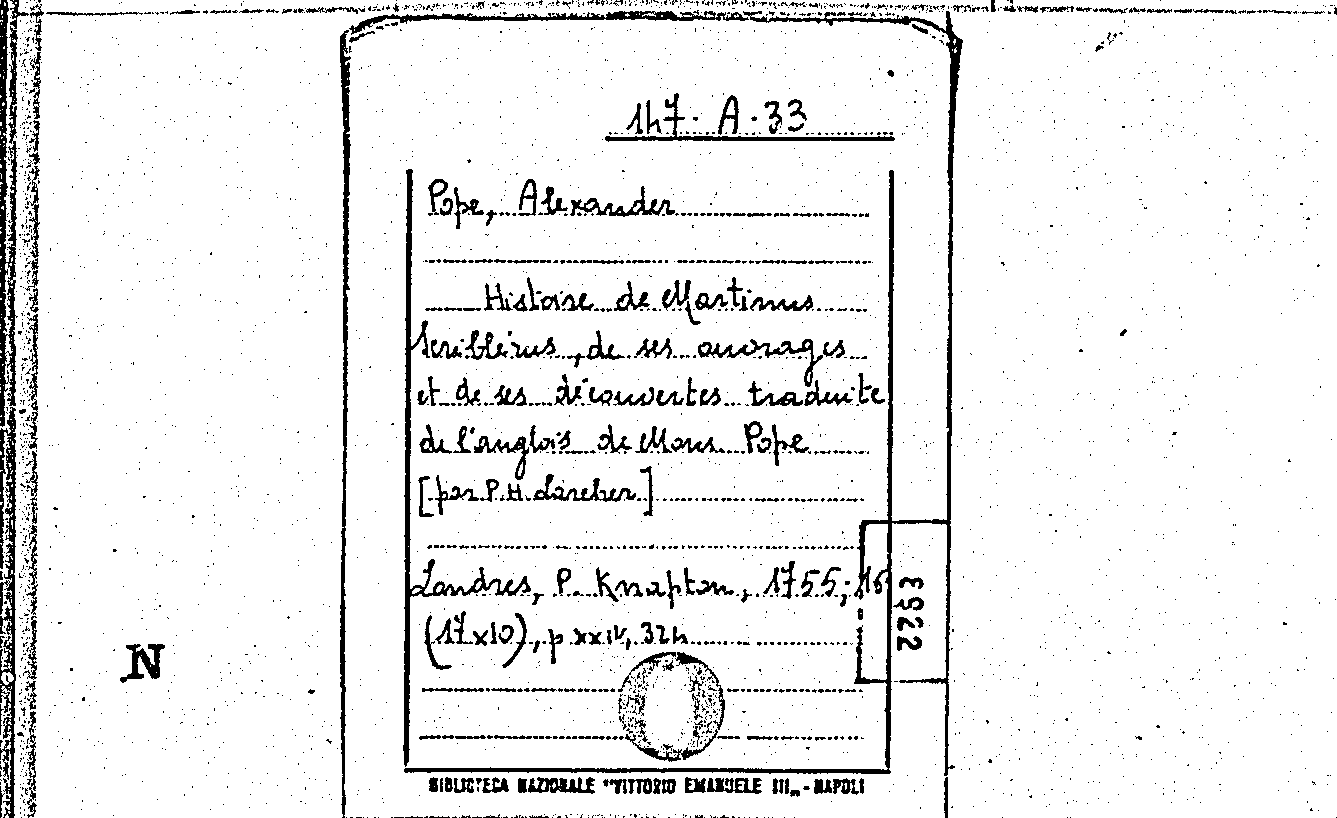 147. A. 33
Pope, Alexander
Histoire de Martinus
Scriblérus, de ses ouvrages
et de ses découvertes traduite
de l'anglois de Mons. Pope
[par P. H. Larcher]
Londres, P. Knapton, 1755; 16
(17x10), p xxiv, 324
3922
N
BIBLIOTECA NAZIONALE "VITTORIO EMANUELE III„ - NAPOLI